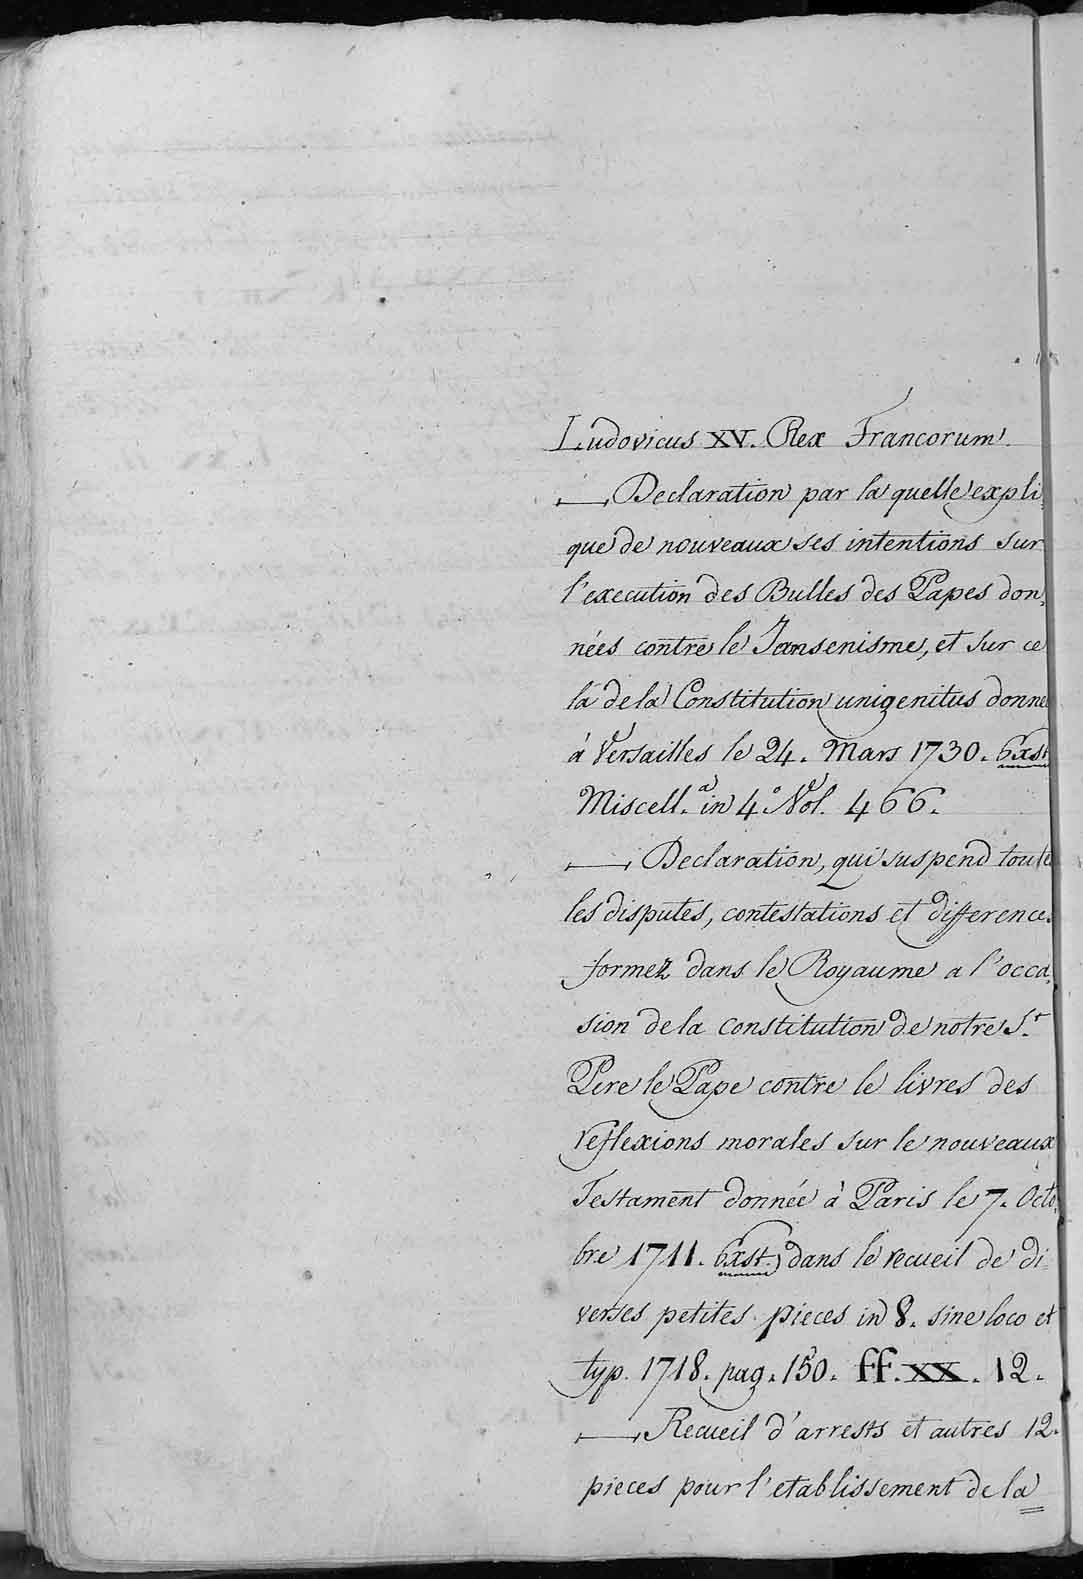 Ludovicus XV. Rex Francorum.
—— Declaration par la quelle expli
que de nouveaux ses intentions sur
l'execution des Bulles des Papes don,
nées contre le Jansenisme, et sur ce
la de la Constitution unigenitus donne
à Versailles le 24. Mars 1730. Exst
Miscell.a in 4.o Vol. 466.
—— Declaration, qui suspend toute
les disputes, contestations et differences
formez dans le Royaume a l'occa,
sion de la constitution de notre S.t
Pere le Pape contre le livres des
reflexions morales sur le nouveaux
Testament donnée à Paris le 7. Octo,
bre 1711. Exst. dans le recueil de di=
verses petites pieces in 8. sine loco et
typ. 1718. pag. 150. ff. XX. 12.
—— Recueil d'arrests et autres 12.
pieces pour l'etablissement de la